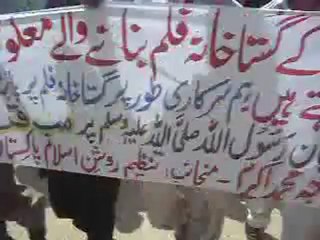 کے گستاخانہ فلم بنانے والے
ہیں ہم سرکاری طور پر گستاخانہ فلم پر
رسول اللہ صلی اللہ علیہ وسلم پر
محمد اکرم - منجانب: تنظیم روشن اسلام پاکستان